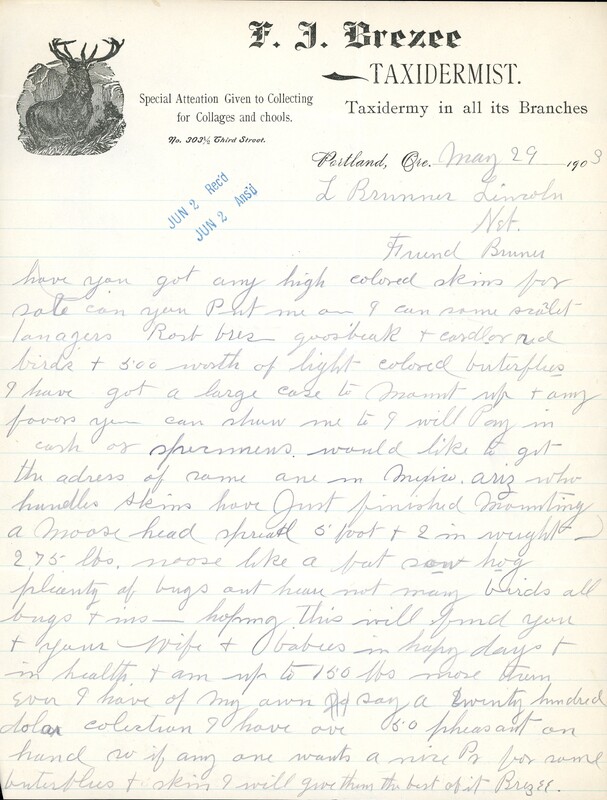 F. J. Brezee
TAXIDERMIST.
Special Attention Given to Collecting
for Collages and chools.
Taxidermy in all its Branches
No. 303½ Third Street.
Portland, Ore. May 29 1903
JUN 2 Rec'd
JUN 2 Ans'd
L Brunner Lincoln
Neb.
Friend Bruner
have you got any high colored skins for
sale can you Put me on I can some scalet
tanagers Rost bres goosbeak + cardlor red
birds + 5.00 worth of light colored buterflies
I have got a large case to mount up + any
favors you can show me to I will Pay in
cash or specimens. would like to get
the adress of some one in Mexico. ariz who
handles skins have Just finished Mounting
a Moose head spread 5 foot + 2 in weight
275 lbs. noose like a fat sow hog
plenty of bugs out hear not many birds all
bugs + ins hoping this will find you
+ your Wife + babies in hapy days +
in health + am up to 150 lbs more then
Ever I have of my own say a twenty hundred
dolar colection I have ove 50 pheasant on
hand so if any one wants a nise Pr for some
buterflies + skin I will give them the best of it Brezee.